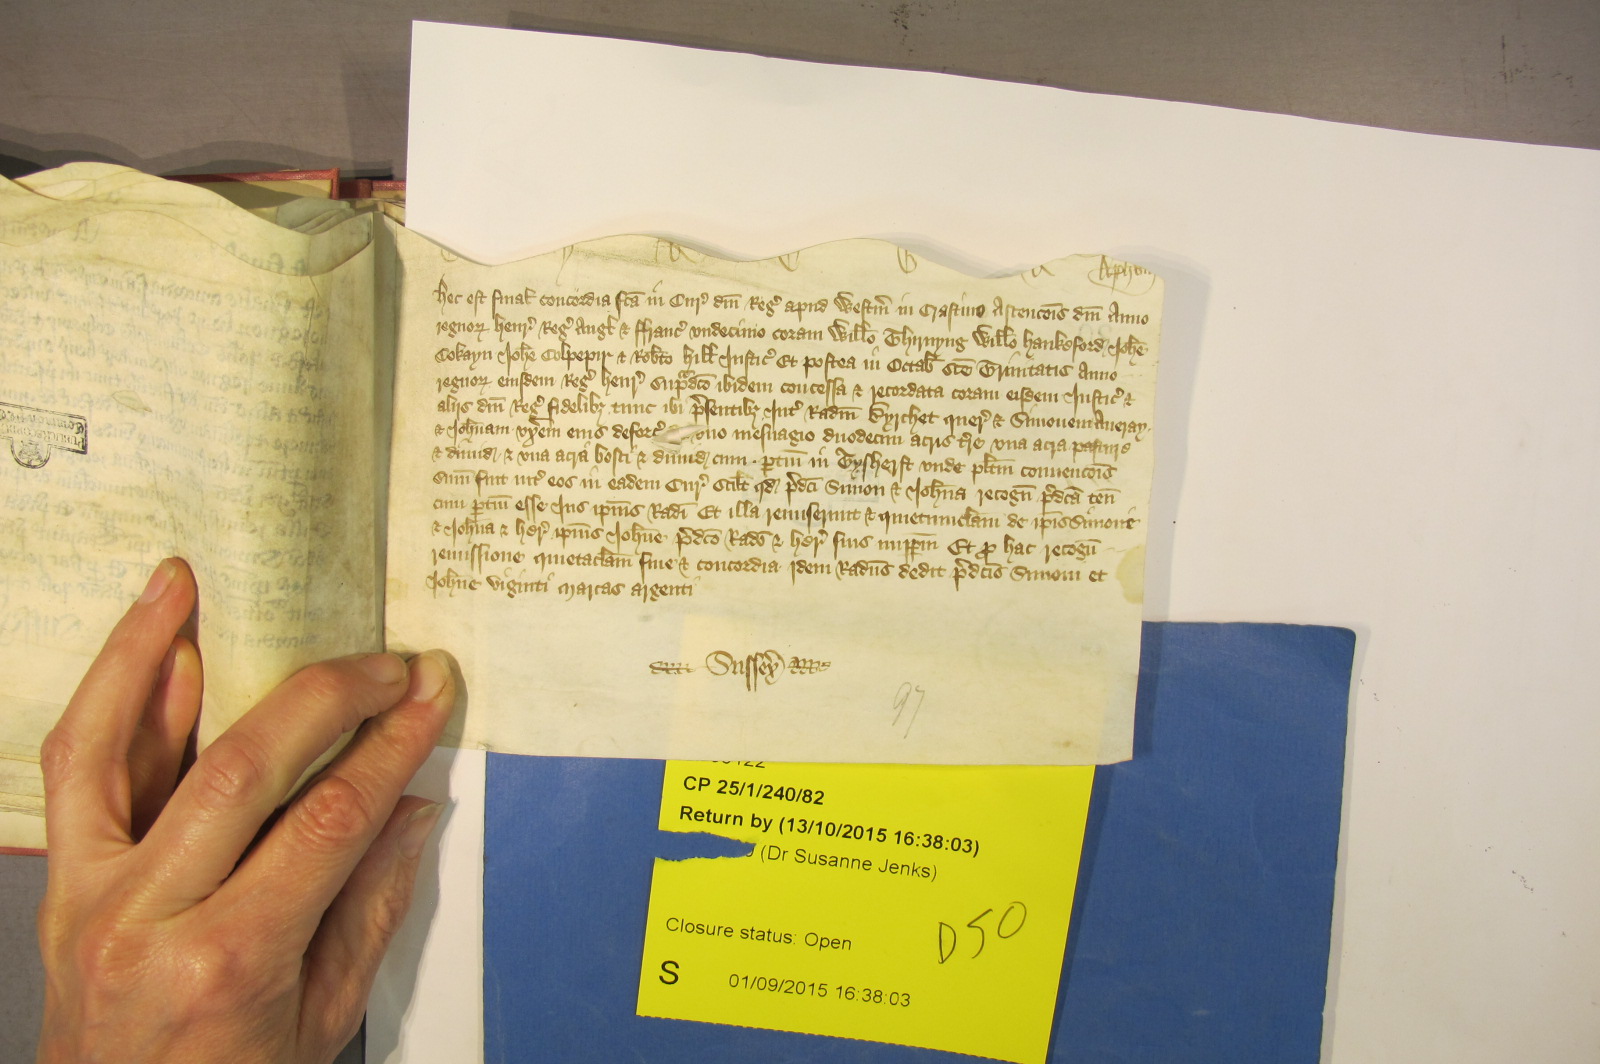 Hec est final concordia fca in Cur dni Reg apud Westm in Crastino Ascencois dni Anno
regnor Henr Reg Angl & Franc undecimo coram Willo Thirnyng Willo Hankeford Johe
Cokayn Johe Colpepir & Robto Hill Justic Et postea in Octab sce Trinitatis Anno
regnor eiusdem Reg Henr supradco ibidem concessa & recordata coram eisdem Justic &
aliis dni Reg fidelibz tunc ibi psentibz Int Radm Byrchet quer & Simonem Aueray
& Johnam uxem eius deforc uno mesuagio duodecim acris tre una acra pasture
& dimid & una acra bosci & dimid cum ptin in Tysherst unde plitm convencois
sum fuit int eos in eadem Cur Scilt qd pdci Simon & Johna recogn pdca ten
cum ptin esse Jus ipius Radi Et illa remiserunt & quietumclam de ipis Simone
& Johna & her ipius Johne pdco Rado & her suis imppm Et p hac recogn
remissione quietaclam fine & concordia idem Radus dedit pdcis Simoni et
Johne viginti marcas argenti
Sussex
97
CP 25/1/240/82
Return by (13/10/2015 16:38:03)
(Dr Susanne Jenks)
Closure status: Open
D50
S
01/09/2015 16:38:03